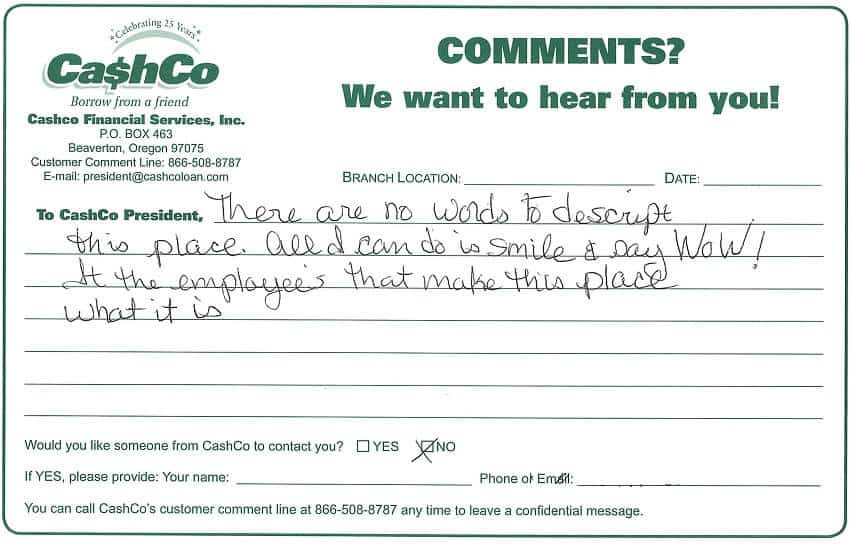 Celebrating 25 Years
Ca$hCo
Borrow from a friend
Cashco Financial Services, Inc.
P.O. BOX 463
Beaverton, Oregon 97075
Customer Comment Line: 866-508-8787
E-mail: president@cashcoloan.com
COMMENTS?
We want to hear from you!
BRANCH LOCATION: DATE:
To CashCo President, There are no words to descript
this place. All I can do is smile & say WoW!
It the employee's that make this place
what it is
Would you like someone from CashCo to contact you? YES NO
If YES, please provide: Your name: Phone or Email:
You can call CashCo's customer comment line at 866-508-8787 any time to leave a confidential message.